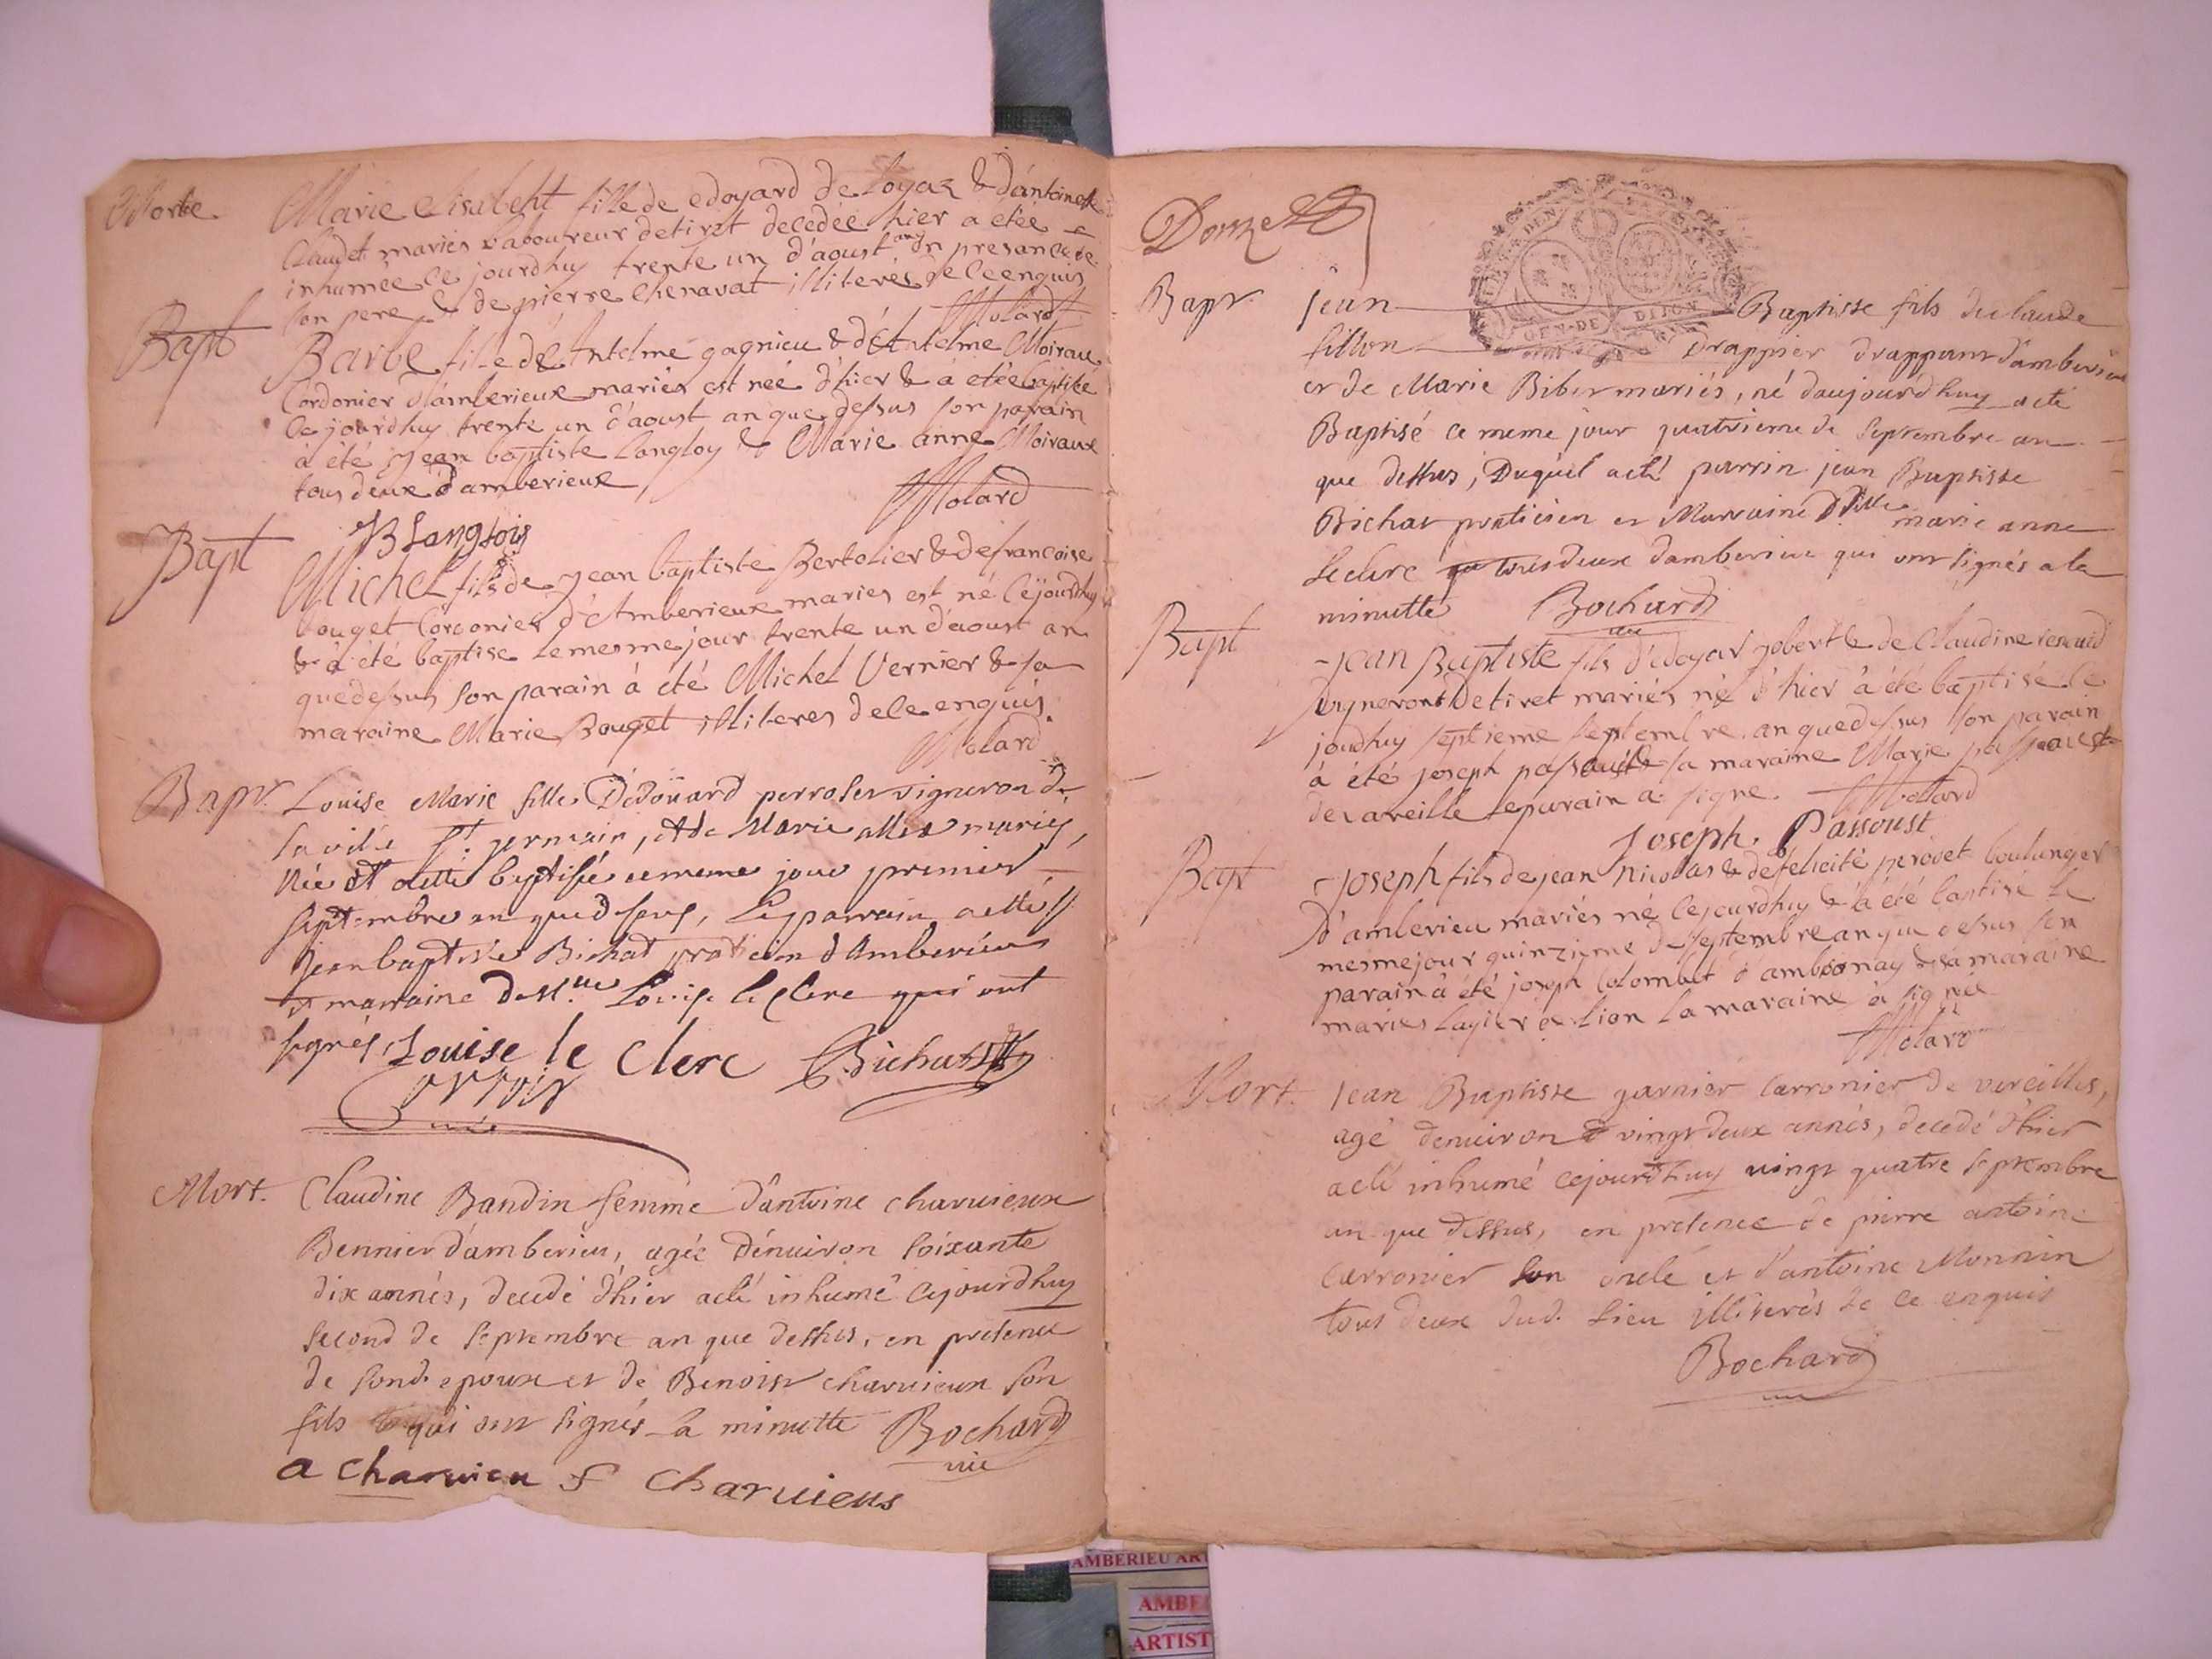 Morte
Marie Elisabeht fille de edoyard de loyaz & d'antoinete
Claudet mariés laboureur de tiret decedée hier a etée
inhumée ce jourdhuy trente un d'aoust an en presance de
son pere & de pierre Chenavat illiterés de ce enquis
Molard
Bapt
Barbe fille de Antelme gagnieu & d'Antelme Moiraux
Cordonier d'amberieux mariés est née d'hier & a etée baptisée
ce jourdhuy trente un d'aoust an que dessus son parain
a été Jean baptiste Langloy & Marie anne Moiraux
tous deux d'amberieux
Molard
JB Langlois
Bapt
Michel fils de Jean baptiste Bertolier & de francoise
bouget Cordonier d'Amberieux maries est né Cejourdhuy
& a été baptise le mesme jour trente un d'aoust an
que dessus son parain à été Michel Vernier & sa
maraine Marie Bouget illiteres de ce enquis
Molard
Bapt.
Louise Marie fille D'edoüard perroset vigneron de
la ville St. germain, et de Marie allex mariés,
Née et a etté baptisée ce meme jour premier
Septembre an que dessus, Le parrain a etté
Jean baptiste Bichat praticien d'Amberieux
et marraine demlle Louise le Clerc qui ont
signés, Louise le Clerc Bichat
Mort.
Claudine Bandin femme d'antoine charvieux
Bennier d'amberieu, agée d'enuiron soixante
dix annés, decedé d'hier a eté inhumé cejourdhuy
second de septembre an que dessus, en presence
de sond. epoux et de Benoist charvieux son
fils qui ont signés la minutte Bochard
vic
a charvieu f charvieus
Donze
GEN. DE DIJON
Bapt.
jean Baptisse fils de claude
fillon drappier drappant d'amberieux
et de Marie Bibet mariés, né d'aujourd'huy a eté
Baptisé ce meme jour quatrieme de septembre an
que dessus, Duquel a eté parrin jean Baptiste
Bichat praticien et Marraine Dlle marie anne
Leclerc tous deux damberieux qui ont signés a la
minutte Bochard
vic
Bapt
jean Baptiste fils d'edoyar gobert & de Claudine renaud
vigneront de tiret mariés né d'hier à été baptisé ce
jourdhuy septieme septembre an que dessus son parain
à été joseph passoust & sa maraine Marie passoust
de vareille le parain a signe. Molard
Joseph. Passoust
Bapt
joseph fils de jean Nicolas & de felicité perovet boulanger
d'amberieu mariés né cejourdhuy & à été baptisé le
mesme jour quinzieme de septembre an que dessus son
parain à été joseph Colombet d'ambronay & sa maraine
maries Lagier de Lion la maraine à signée
Molard
Mort.
jean Baptiste garnier carronier de vareilles,
agé d'enuiron vingt deux annés, decedé d'hier
a eté inhumé cejourd'huy vingt quatre septembre
an que dessus, en presence de pierre antoine
carronier son oncle et d'antoine Monnin
tous deux dud. lieu illiterés de ce enquis
Bochard
vic
AMBERIEU AR
AMBE
ARTIST